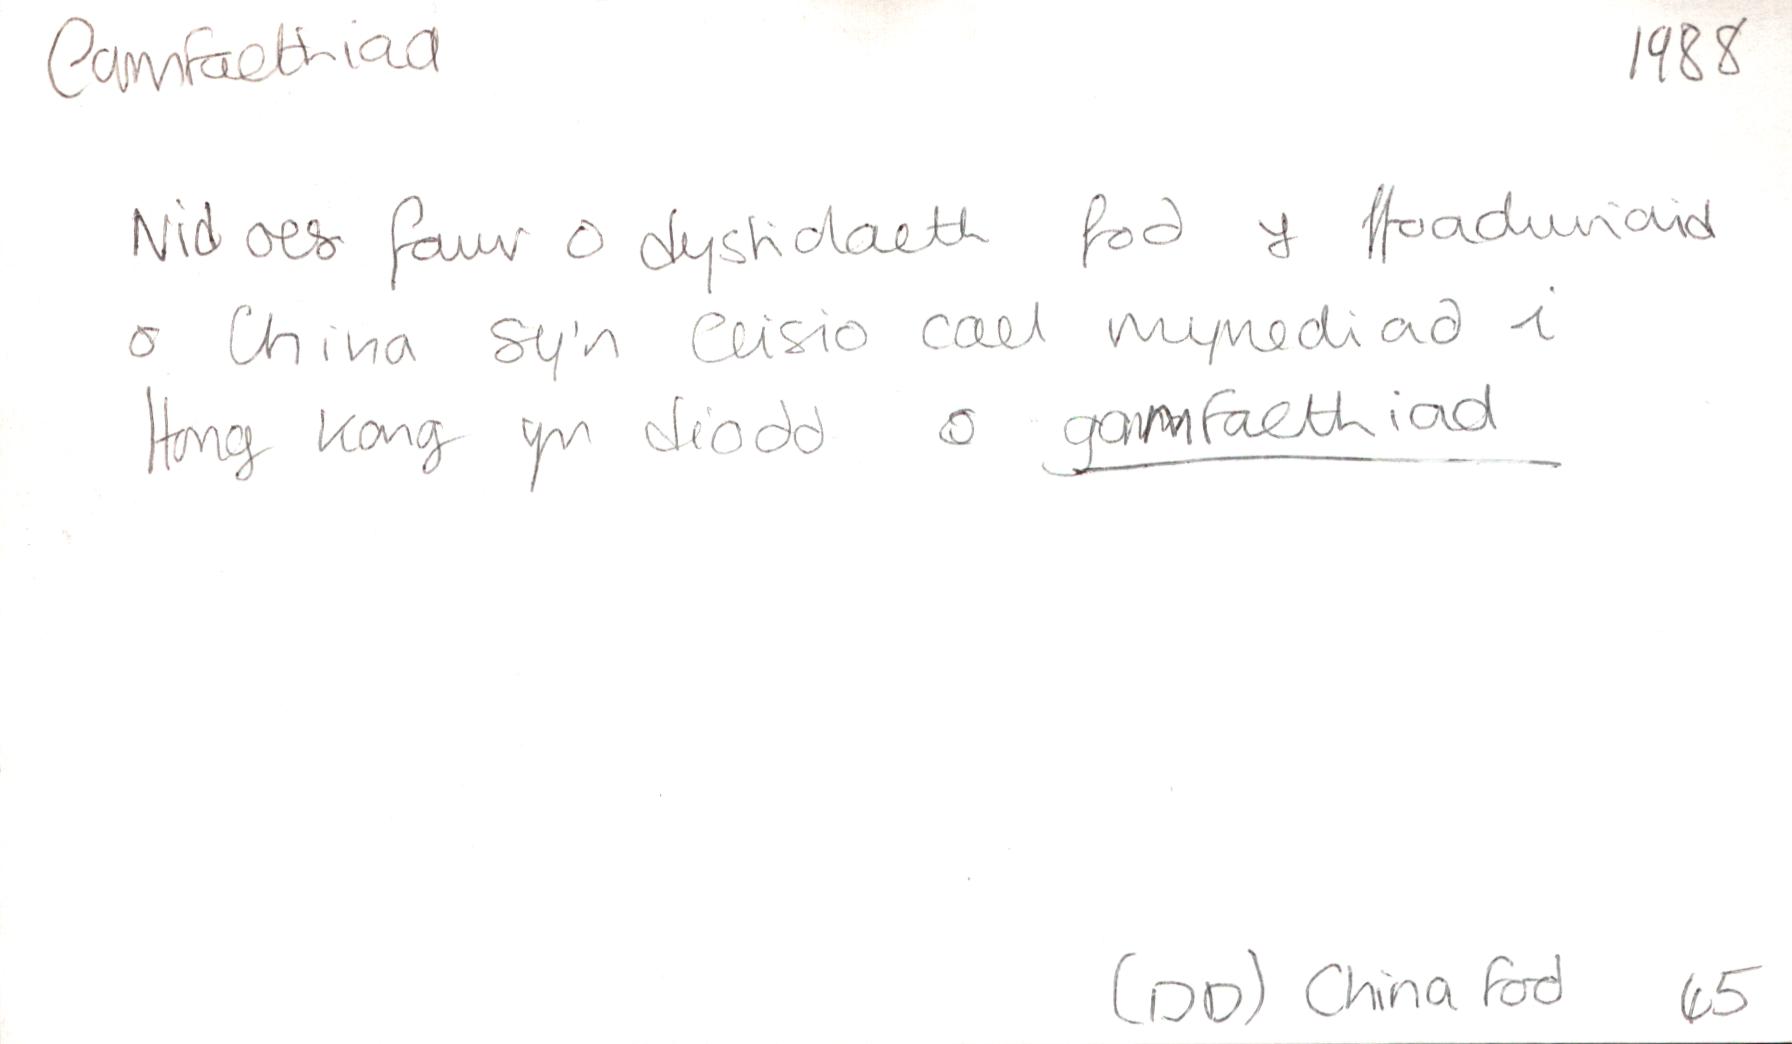 Camfaethiad 1988
Nid oes fawr o dystidaeth fod y ffoaduriaid
o China sy'n ceisio cael mynediad i
Hong Kong yn diodd o gamfaethiad
(DD) China Fod 65